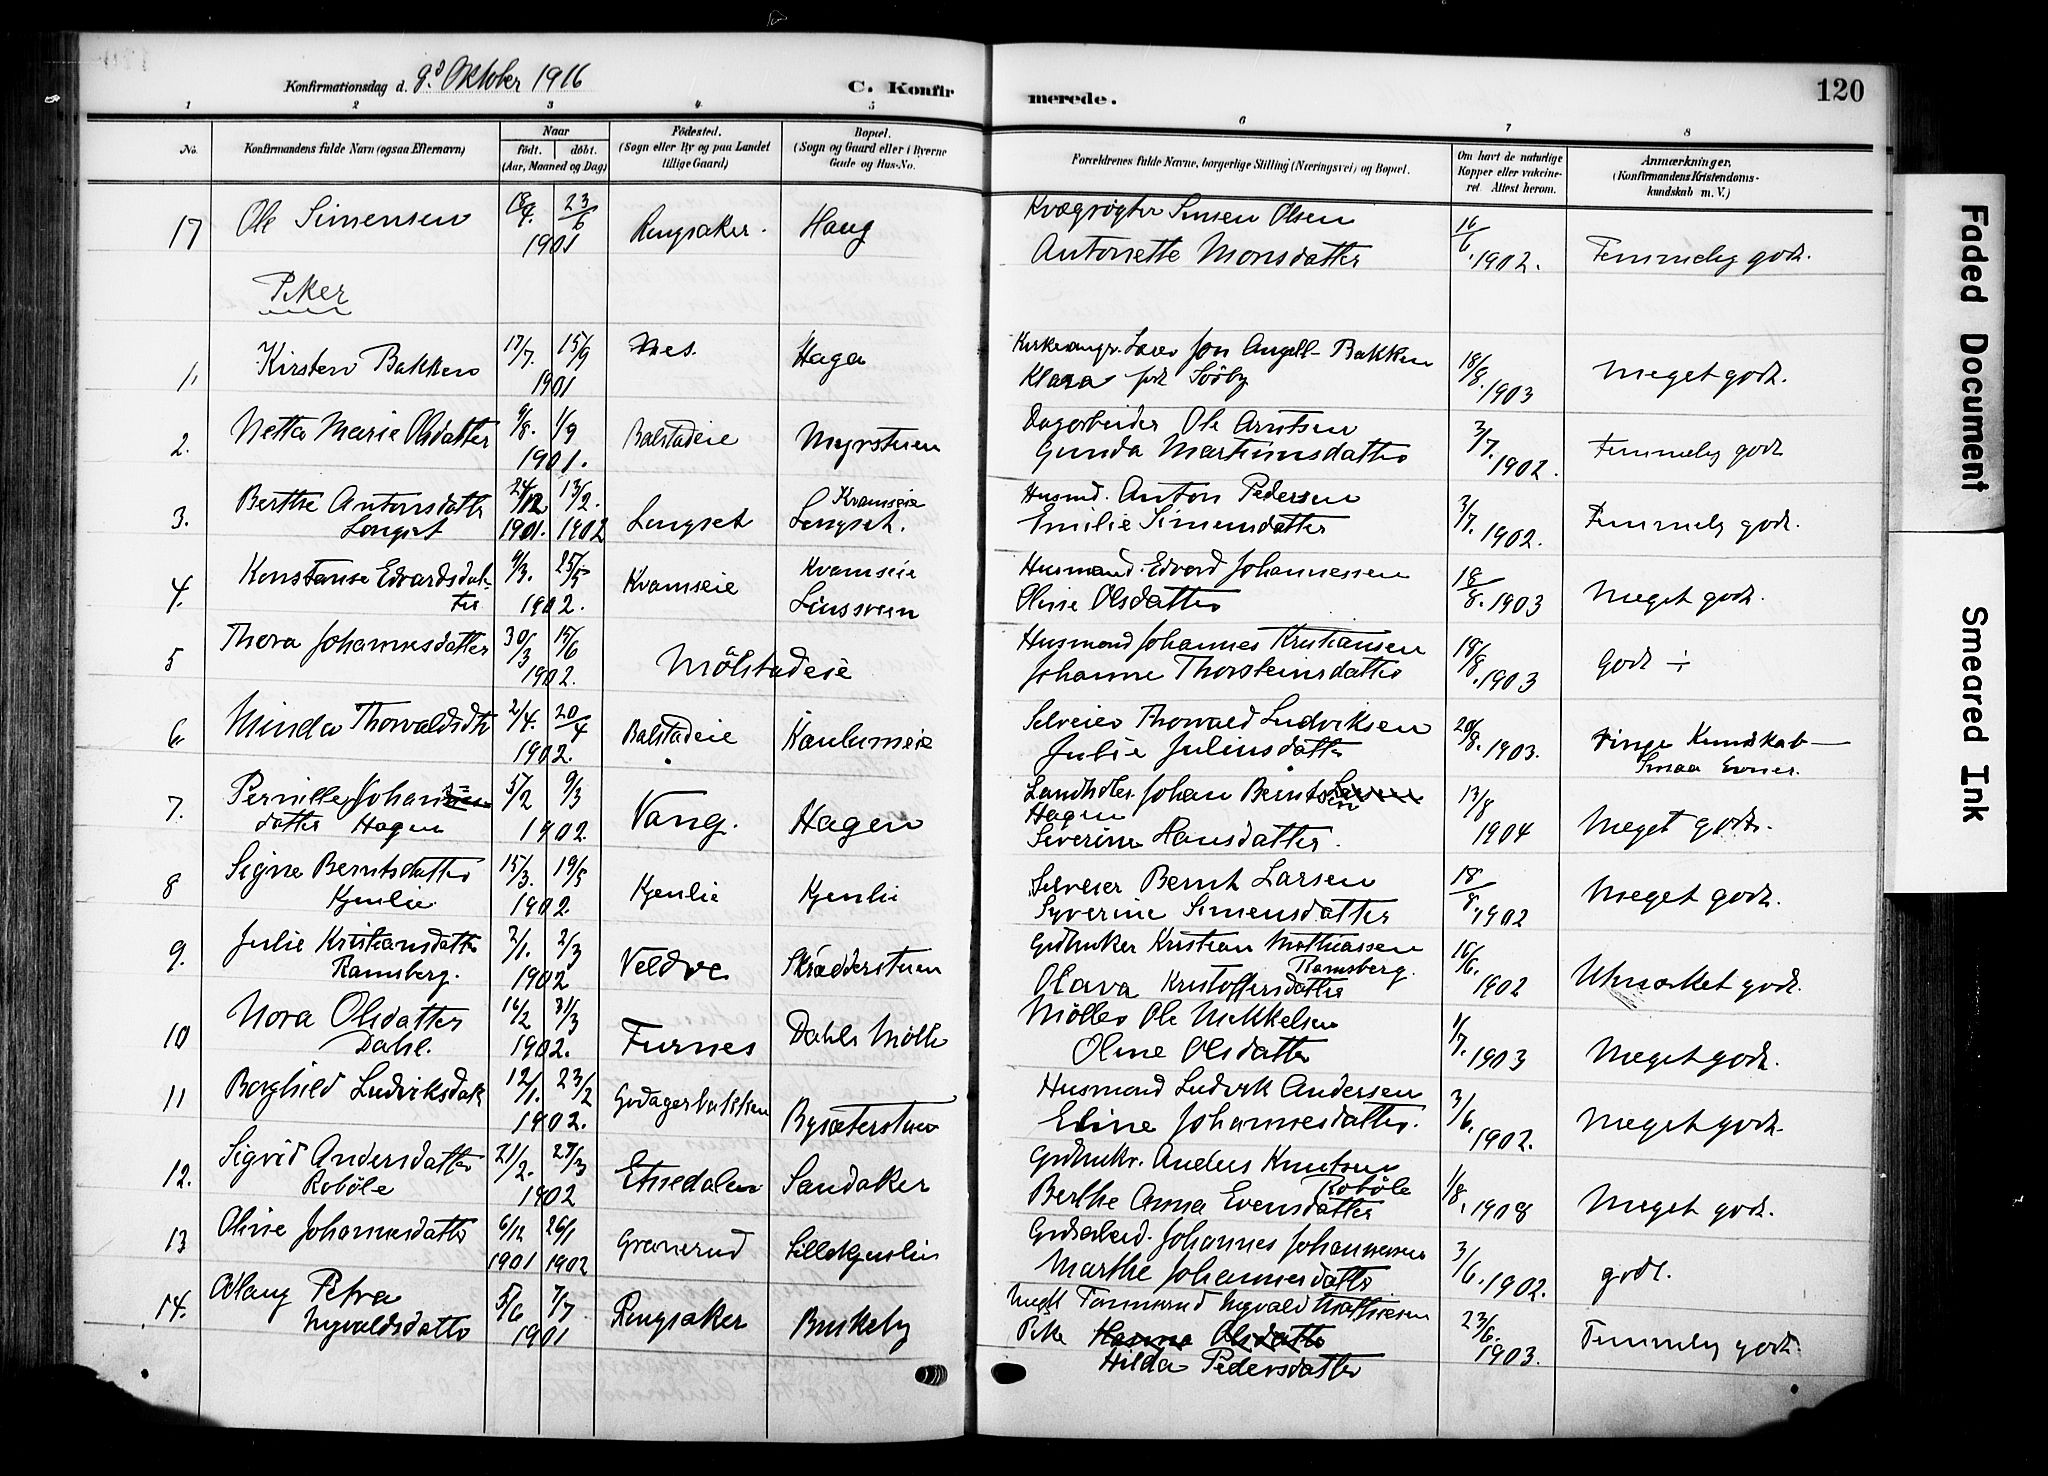 Konfirmationsdag d. 9d Oktober 1916 C. Konfirmerede. 120
1 2 3 4 5 6 7 8
No. Konfirmandens fulde Navn (ogsaa Efternavn) Naar født. døbt. (Aar, Maaned og Dag) Fødested. (Sogn eller By og paa Landet tillige Gaard) Bopæl. (Sogn og Gaard eller i Byerne Gade og Hus-No. Forældrenes fulde Navne, borgerlige Stilling (Næringsvei) og Bopæl. Om havt de naturlige Kopper eller vakcineret. Attest herom. Anmærkninger. (Konfirmandens Kristendomskundskab m. V.)
17 Ole Simensen 18/4. 23/6 1901 Ringsaker. Haug Kvægrøgter Simen Olsen
Antonette Monsdatter 16/6. 1902. Temmelig godt.
Piker
1. Kirsten Bakken 17/7. 15/9 1901 Nes. Haga Jon Angell-Bakken
Klara født Søby 18/8. 1903 Meget godt.
2. Netta Marie Olsdatter 9/8. 1/9 1901. Balstadeie Myrstuen Dagarbeider Ole Arntsen
Gunda Martinusdatter 3/7. 1902. Temmelig godt
3. Berthe Antonsdatter 24/12 13/2. Kramseie Husmd. Anton Pedersen
Longset 1901. 1902 Lengset Lengset. Emilie Simensdatter 3/7. 1902. Temmelig godt.
4. Konstanse Edvardsdatter 9/3. 25/5 1902. Kvamseie Kvamseie Husmand. Edvard Johannessen
Linsveen Oline Olsdatter 18/8. 1903 Meget godt.
5 Thora Johannesdatter 30/3 15/6 1902. Mölstadeie Husmand Johannes Kristiansen
Johanne Thorsteinsdatter 18/8. 1903 Godt ÷
6 Minda Thorvaldsdtr 2/4. 20/4 1902. Balstadeie Kaulumeie Selveier Thorvald Ludviksen
Julie Juliusdatter 20/8. 1903. ringe Kundskab —
Smaa Evner.
7. Pernille Johans
datter Hagen 5/2 9/3 1902. Vang. Hagen Landhdler. Johan Berntsen
Hagen
Severine Hansdatter. 13/8 1904 Meget godt.
8 Signe Berntsdatter 15/3. 19/5 Selveier Bernt Larsen
Kjenlie 1902. Kjenlie Kjenlie Syverine Simensdatter 18/8. 1902 Meget godt.
9. Julie Kristiansdatter 2/1. 2/3 Grdbruker Kristian Mathiassen
Ramsberg. 1902 Veldre Skrædderstuen Ramsberg.
Olava Kristoffersdatter 16/6. 1902 Utmærket godt.
10 Nora Olsdatter 16/2 31/3 Møller Ole Mikkelsen
Dahl. 1902. Furnes Dahls Mølle Oline Olsdatter 1/7. 1903 Meget godt.
11 Borghild Ludviksdatt 12/1. 23/2 1902. Godagerbakken Bysæterstuen Husmand Ludvik Andersen
Eline Johannesdatter. 3/6. 1902. Meget godt.
12. Sigrid Andersdatter 21/2. 27/3 Grdbrukr. Anders Knutsen
Robøle 1902 Etnedalen Sandaker Robøle
Berthe Anna Evensdatter 1/8. 1908 Meget godt.
13 Oline Johannesdatter 6/12 26/1 1901 1902 Granerud Lillekjenlie Johannes Johannesen
Marthe Johannesdatter 3/6. 1902. godt.
14. Aslaug Petra 5/6 7/7 Tømmermd Nyvald Mathiesen
Nyvaldsdatter 1901 Ringsaker Buskeby Pike Hanna Olsdatter
Hilda Pedersdatter 23/6. 1903. Temmelig godt.
Faded Document
Smeared Ink